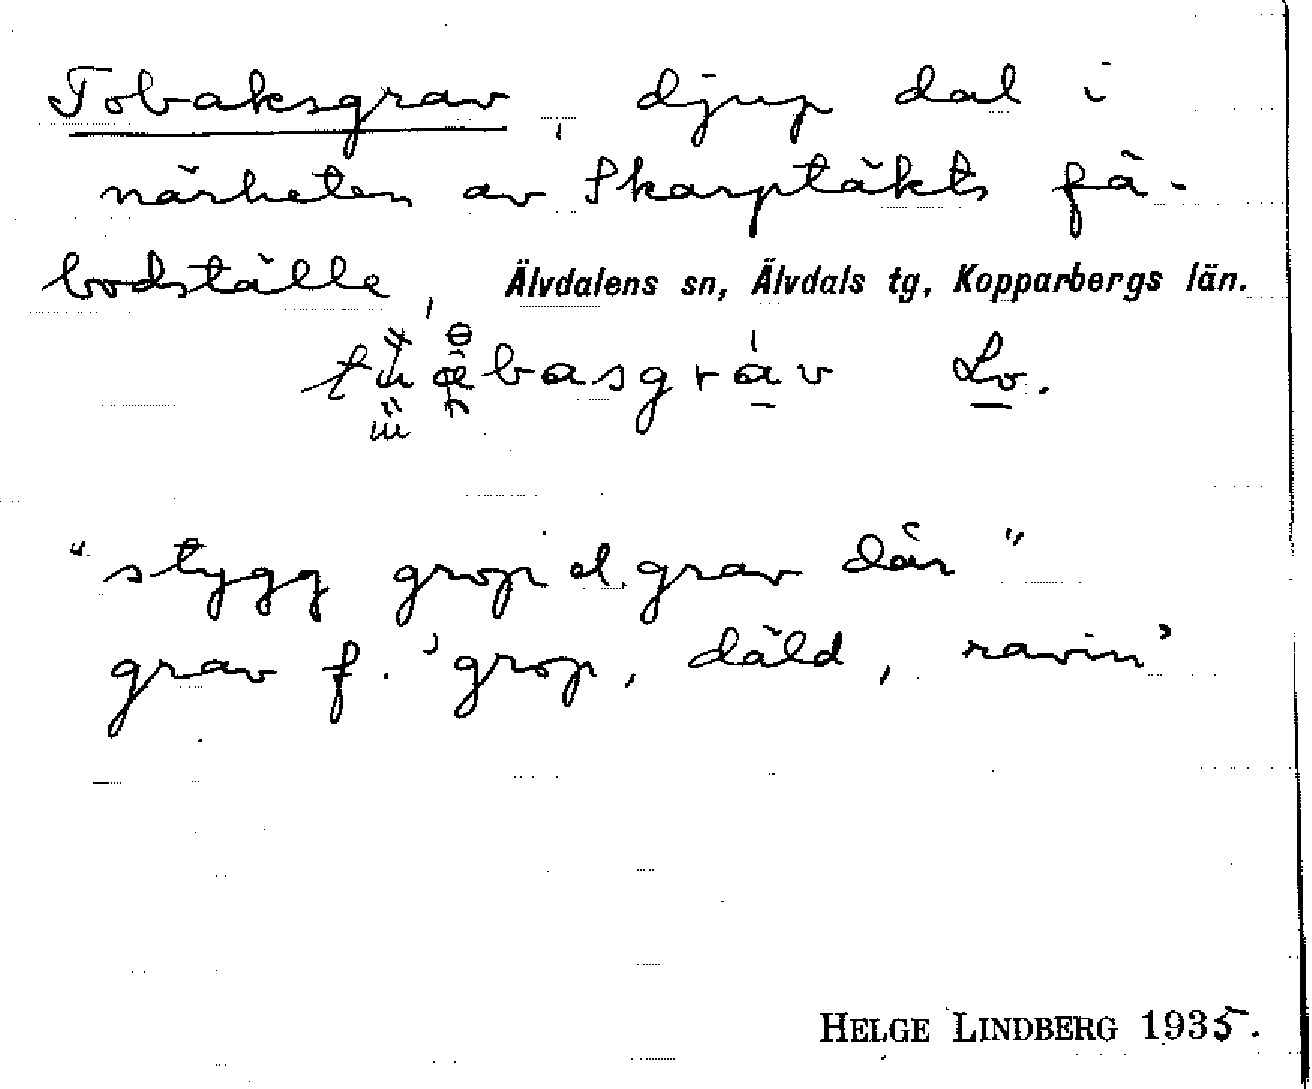 Tobaksgrav, djup dal i
närheten av Skarptäkts fä-
bodställe, Älvdalens sn, Älvdals tg, Kopparbergs län.
Lv.
"stygg grop el. grav där"
grav f. 'grop, däld, ravin'
HELGE LINDBERG 1935.